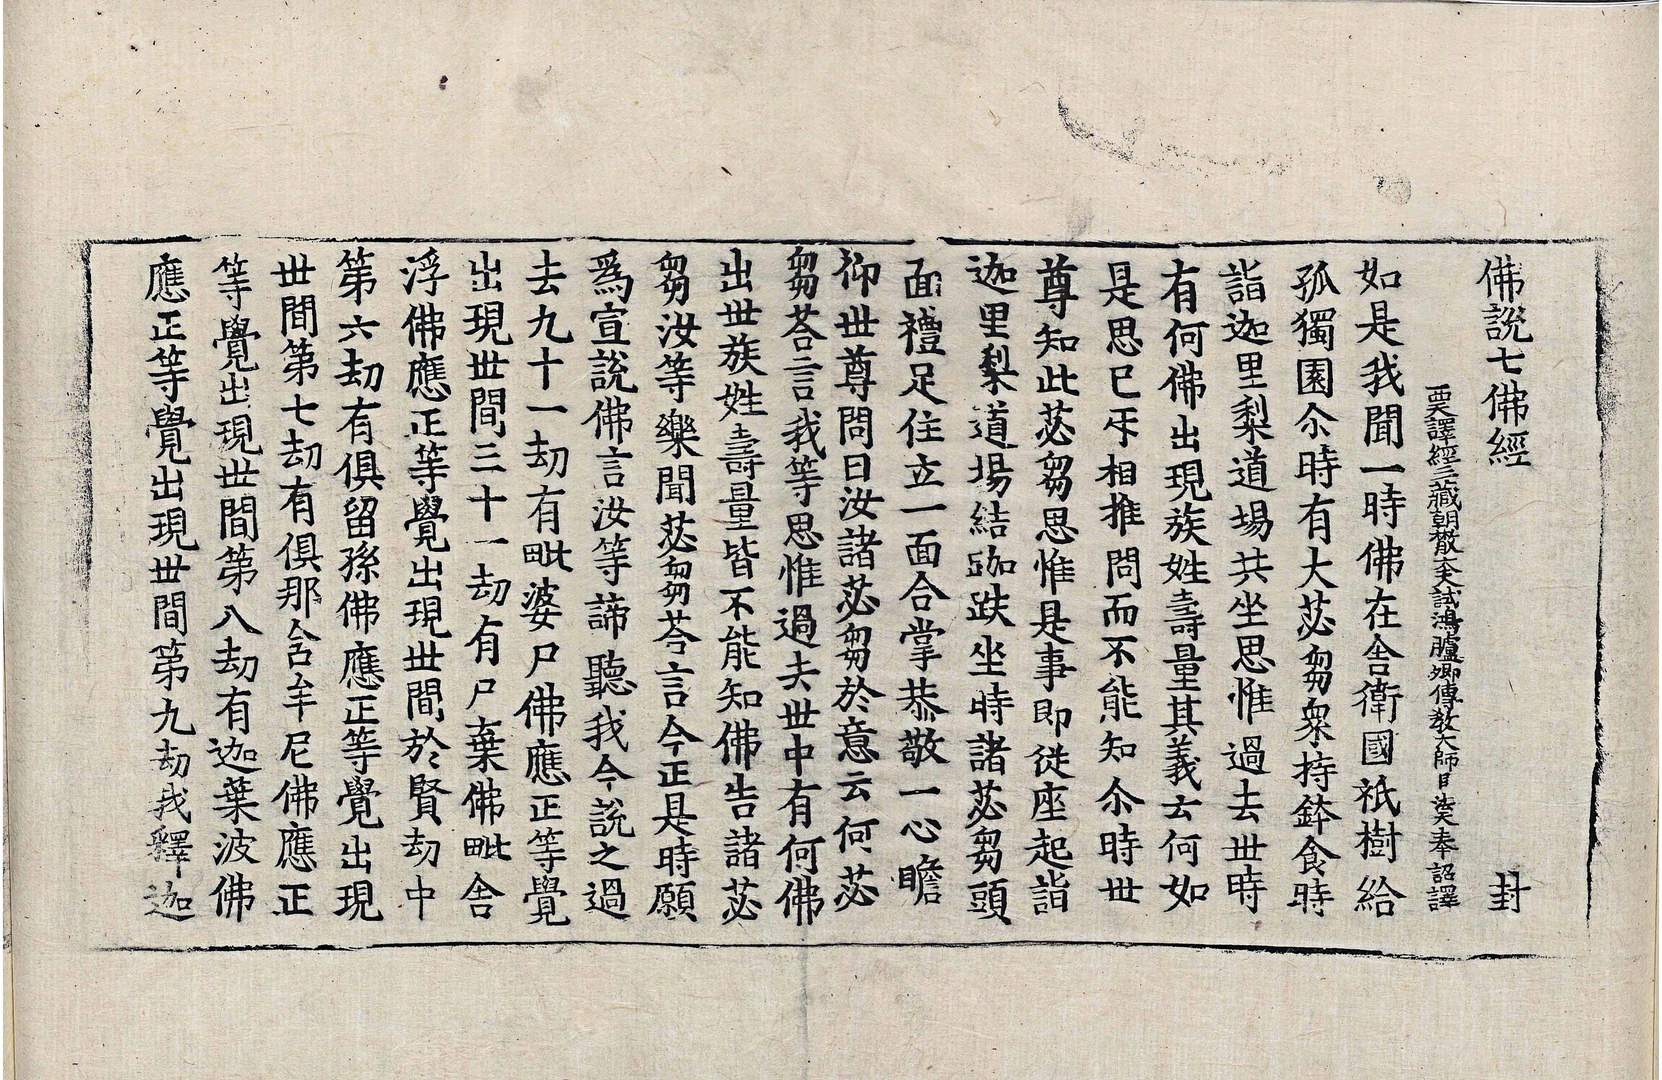 佛說七佛經 封
西天譯經三藏朝散大夫試鴻臚卿傳教大師臣法天奉 詔譯
如是我聞一時佛在舍衛國祇樹給
孤獨園尒時有大苾芻衆持鉢食時
詣迦里梨道場共坐思惟過去世時
有何佛出現族姓壽量其義云何如
是思已㸦相推問而不能知尒時世
尊知此苾芻思惟是事即從座起詣
迦里梨道場結跏趺坐時諸苾芻頭
面禮足住立一面合掌恭敬一心瞻
仰世尊問曰汝諸苾芻於意云何苾
芻荅言我等思惟過去世中有何佛
出世族姓壽量皆不能知佛告諸苾
芻汝等樂聞苾芻荅言今正是時願
爲宣說佛言汝等諦聽我今說之過
去九十一劫有毗婆尸佛應正等覺
出現世間三十一劫有尸棄佛毗舍
浮佛應正等覺出現世間於賢劫中
第六劫有俱留孫佛應正等覺出現
世間第七劫有俱那含牟尼佛應正
等覺出現世間第八劫有迦葉波佛
應正等覺出現世間第九劫我釋迦